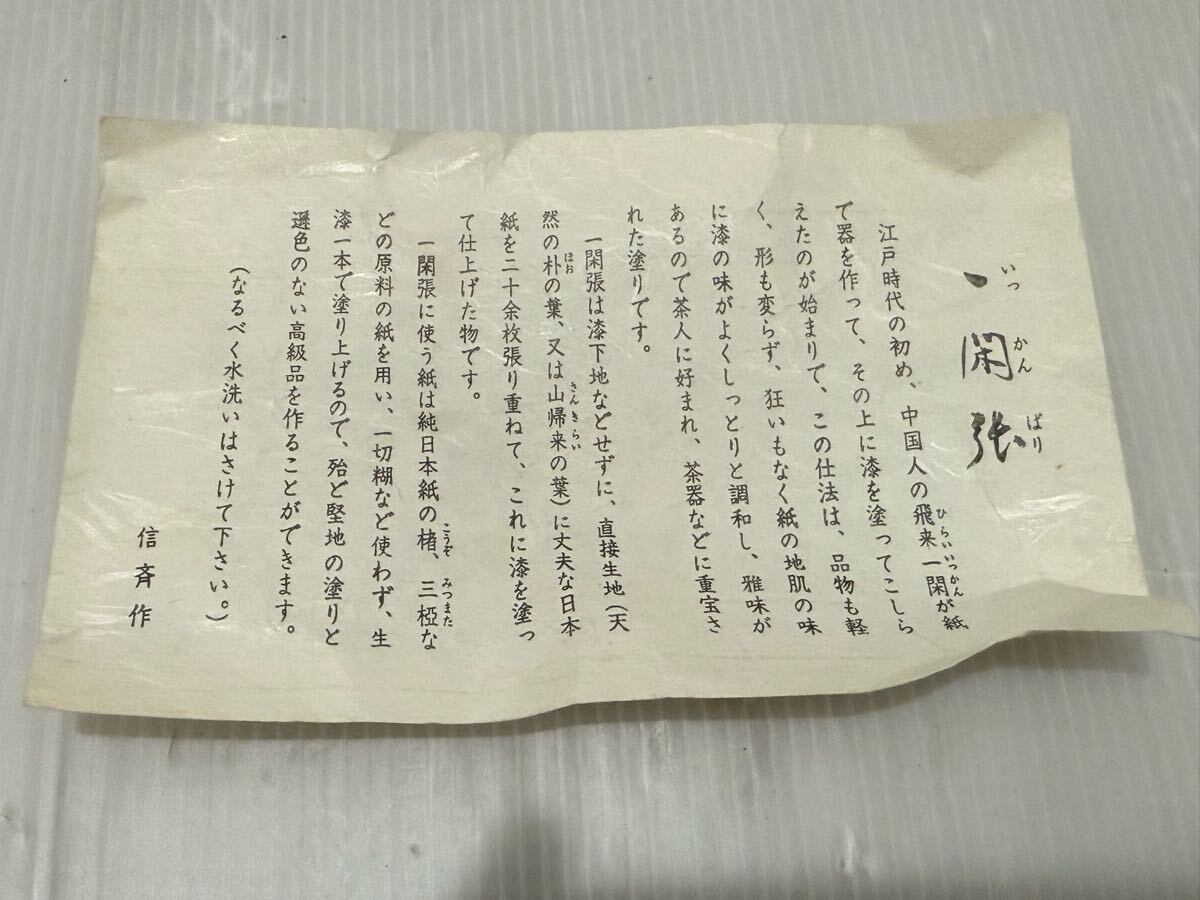 一閑張
いっかんばり
江戸時代の初め、中国人の飛来一閑が紙
ひらいいつかん
で器を作って、その上に漆を塗ってこしら
えたのが始まりで、この仕法は、品物も軽
く、形も変らず、狂いもなく紙の地肌の味
に漆の味がよくしっとりと調和し、雅味が
あるので茶人に好まれ、茶器などに重宝さ
れた塗りです。
一閑張は漆下地などせずに、直接生地（天
然の朴の葉、又は山帰来の葉）に丈夫な日本
ほお さんきらい
紙を二十余枚張り重ねて、これに漆を塗っ
て仕上げた物です。
一閑張に使う紙は純日本紙の楮、三椏な
こうぞ みつまた
どの原料の紙を用い、一切糊など使わず、生
漆一本で塗り上げるので、殆ど堅地の塗りと
遜色のない高級品を作ることができます。
（なるべく水洗いはさけて下さい。）
信斉作